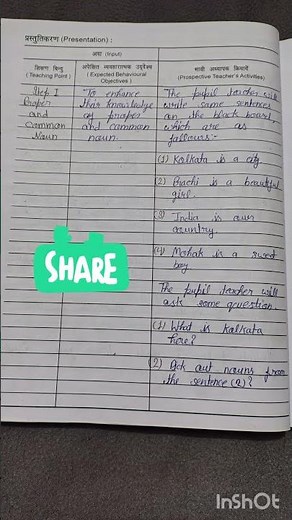 प्रस्तुतिकरण (Presentation) :
अदा (Input)
शिक्षण बिन्दु
(Teaching Point)
अपेक्षित व्यवहारात्मक उद्देश्य
(Expected Behavioural
Objectives)
भावी अध्यापक क्रियायें
(Prospective Teacher's Activities)
Step I
Proper
and
Common
Noun
To enhance
their knowledge
of proper
and common
noun.
The pupil teacher will
write some sentences
on the black board
which are as
follows:-
(1) Kolkata is a city.
(2) Prachi is a beautiful
girl.
(3) India is our
country.
(4) Mehak is a sweet
boy
The pupil teacher will
ask some question.
(1) What is Kolkata
here?
(2) Pick out nouns from
the sentence (2)?
SHARE
InShOt